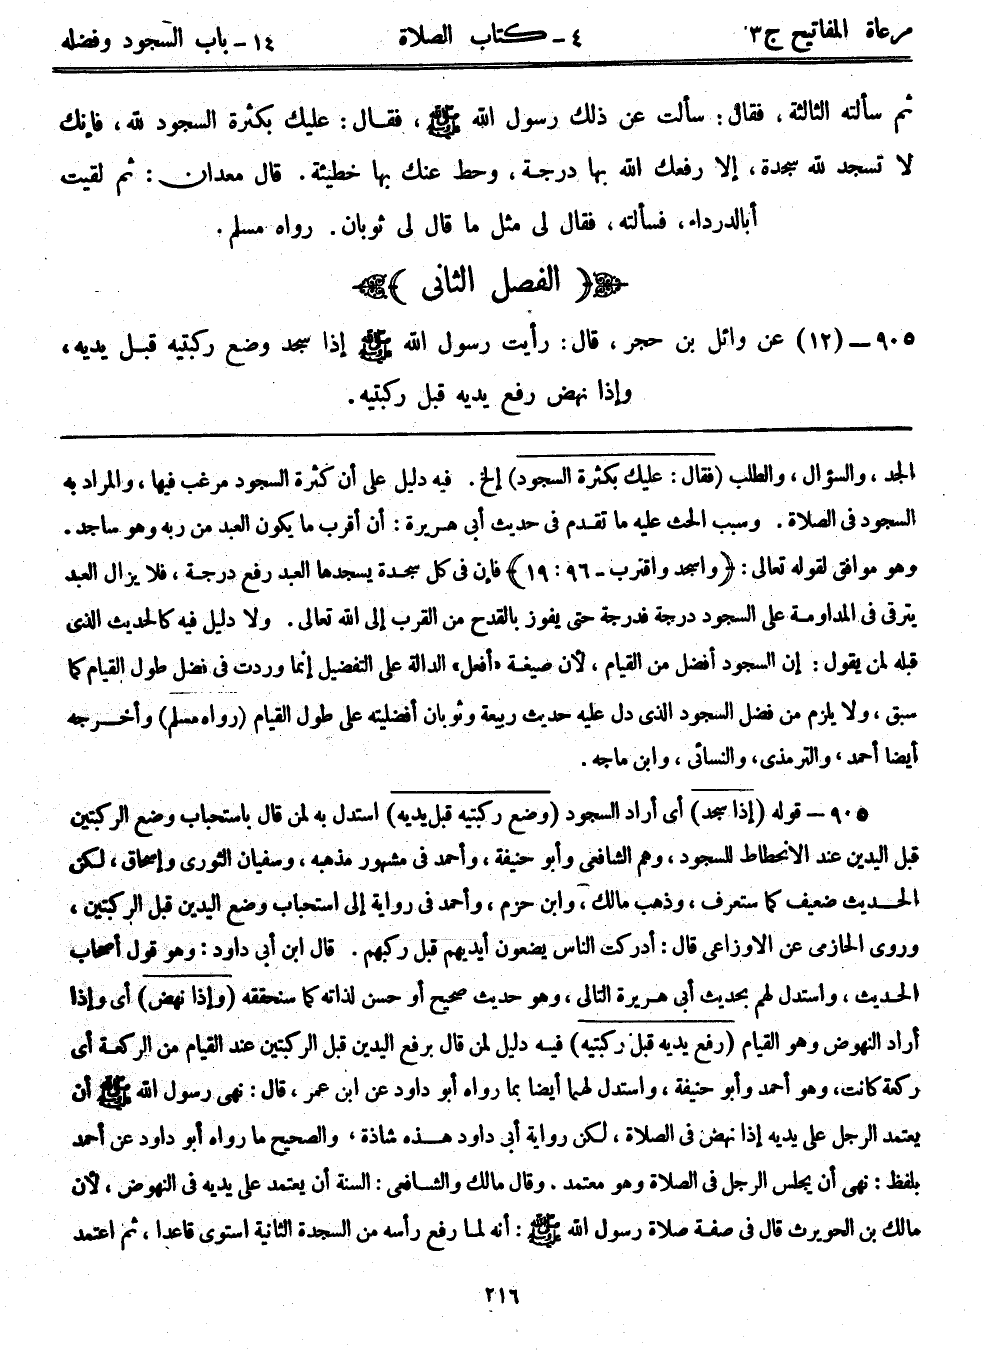 مرعاة المفاتيح ج٣ ٤ - كتاب الصلاة ١٤ - باب السجود وفضله
ثم سألته الثالثة، فقال: سألت عن ذلك رسول الله ﷺ، فقال: عليك بكثرة السجود لله، فإنك
لا تسجد لله سجدة، إلا رفعك الله بها درجة، وحط عنك بها خطيئة. قال معدان: ثم لقيت
أبالدرداء، فسألته، فقال لى مثل ما قال لى ثوبان. رواه مسلم.
﴿ الفصل الثانى ﴾
٩٠٥ — (١٢) عن وائل بن حجر، قال: رأيت رسول الله ﷺ إذا سجد وضع ركبتيه قبل يديه،
وإذا نهض رفع يديه قبل ركبتيه.
الجد، والسؤال، والطلب (فقال: عليك بكثرة السجود) إلخ. فيه دليل على أن كثرة السجود مرغب فيها، والمراد به
السجود فى الصلاة. وسبب الحث عليه ما تقدم فى حديث أبى هريرة: أن أقرب ما يكون العبد من ربه وهو ساجد.
وهو موافق لقوله تعالى: ﴿واسجد واقترب - ٩٦: ١٩﴾ فإن فى كل سجدة يسجدها العبد رفع درجة، فلا يزال العبد
يترقى فى المداومة على السجود درجة فدرجة حتى يفوز بالقدح من القرب إلى الله تعالى. ولا دليل فيه كالحديث الذى
قبله لمن يقول: إن السجود أفضل من القيام، لأن صيغة «أفعل» الدالة على التفضيل إنما وردت فى فضل طول القيام كما
سبق، ولا يلزم من فضل السجود الذى دل عليه حديث ربيعة وثوبان أفضليته على طول القيام (رواه مسلم) وأخرجه
أيضا أحمد، والترمذى، والنسائى، وابن ماجه.
٩٠٥ - قوله (إذا سجد) أى أراد السجود (وضع ركبتيه قبل يديه) استدل به لمن قال باستحباب وضع الركبتين
قبل اليدين عند الانحطاط للسجود، وهم الشافعى وأبو حنيفة، وأحمد فى مشهور مذهبه، وسفيان الثورى وإسحاق، لكن
الحديث ضعيف كما ستعرف، وذهب مالك، وابن حزم، وأحمد فى رواية إلى استحباب وضع اليدين قبل الركبتين،
وروى الحازمى عن الاوزاعى قال: أدركت الناس يضعون أيديهم قبل ركبهم. قال ابن أبى داود: وهو قول أصحاب
الحديث، واستدل لهم بحديث أبى هريرة التالى، وهو حديث صحيح أو حسن لذاته كما سنحققه (وإذا نهض) أى وإذا
أراد النهوض وهو القيام (رفع يديه قبل ركبتيه) فيه دليل لمن قال برفع اليدين قبل الركبتين عند القيام من الركعة أى
ركعة كانت، وهو أحمد وأبو حنيفة، واستدل لهما أيضا بما رواه أبو داود عن ابن عمر، قال: نهى رسول الله ﷺ أن
يعتمد الرجل على يديه إذا نهض فى الصلاة، لكن رواية أبى داود هذه شاذة، والصحيح ما رواه أبو داود عن أحمد
بلفظ: نهى أن يجلس الرجل فى الصلاة وهو معتمد. وقال مالك والشافعى: السنة أن يعتمد على يديه فى النهوض، لأن
مالك بن الحويرث قال فى صفة صلاة رسول الله ﷺ: أنه لما رفع رأسه من السجدة الثانية استوى قاعدا، ثم اعتمد
٢١٦